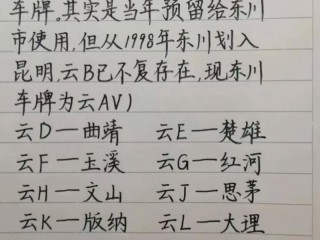 车牌。其实是当年预留给东川
市使用,但从1998年东川划入
昆明,云B已不复存在,现东川
车牌为云AV)
云D一曲靖 云E一楚雄
云F一玉溪 云G一红河
云H一文山 云J一思茅
云K一版纳 云L一大理